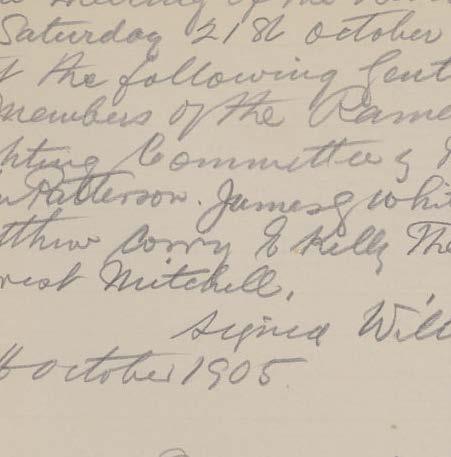 Meeting of the
Saturday 21st October
the following Gent
members of the Rame
hting Committee
Patterson. James G Whit
tthew Corry E Kelly The
rest Mitchell,
Signed Will
6 October 1905